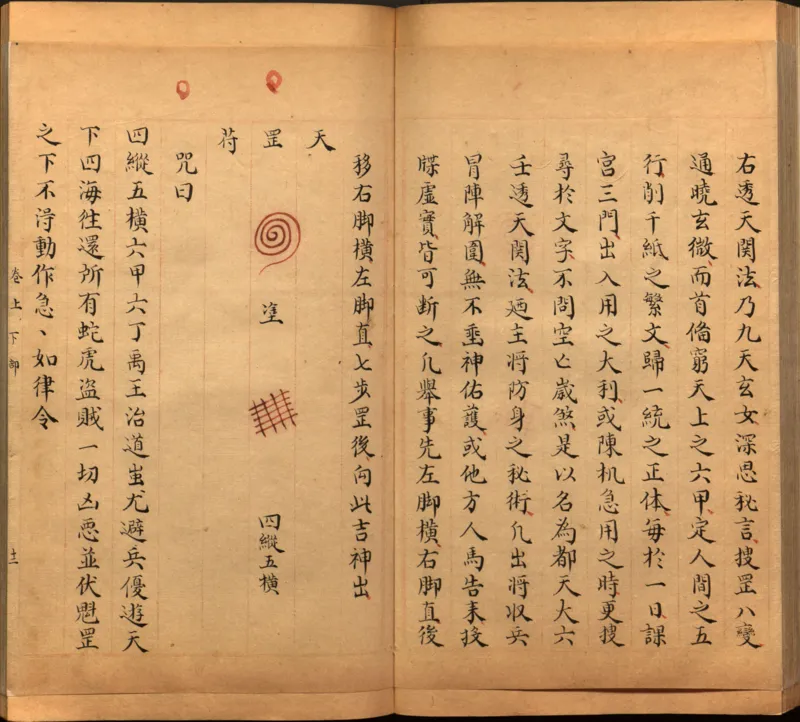 右透天関法乃九天玄女深思秘言搜罡八變
通曉玄微而首俻窮天上之六甲定人間之五
行削千紙之繁文歸一統之正体每於一日課
宮三門出入用之大利或陳机急用之時更搜
尋於文字不問空亡歲煞是以名為都天大六
壬透天関法廼主將防身之秘術凢出將収兵
冐陣解圍無不垂神佑護或他方人馬告来投
牒虛實皆可断之凢舉事先左脚橫右脚直後
移右脚橫左脚直七步罡後向此吉神出
天
罡 塗 四縱五橫
苻
咒曰
四縱五橫六甲六丁禹王治道蚩尤避兵優遊天
下四海往還所有蛇虎盜賊一切凶惡並伏魁罡
之下不淂動作急〻如律令
卷上下部 十二